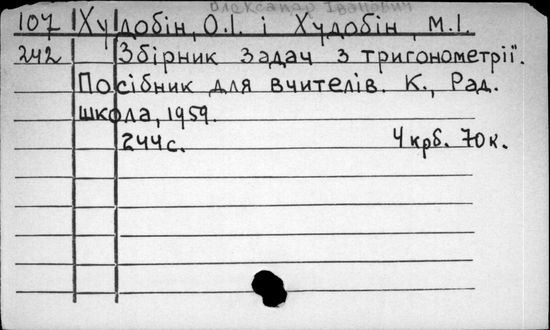 Олександр Іванович
107 Худобін, О.І. і Худобін, М.І.
242 Збірник задач з тригонометрії".
Посібник для вчителів. К., Рад.
школа, 1959.
244 с. 4 крб. 70 к.